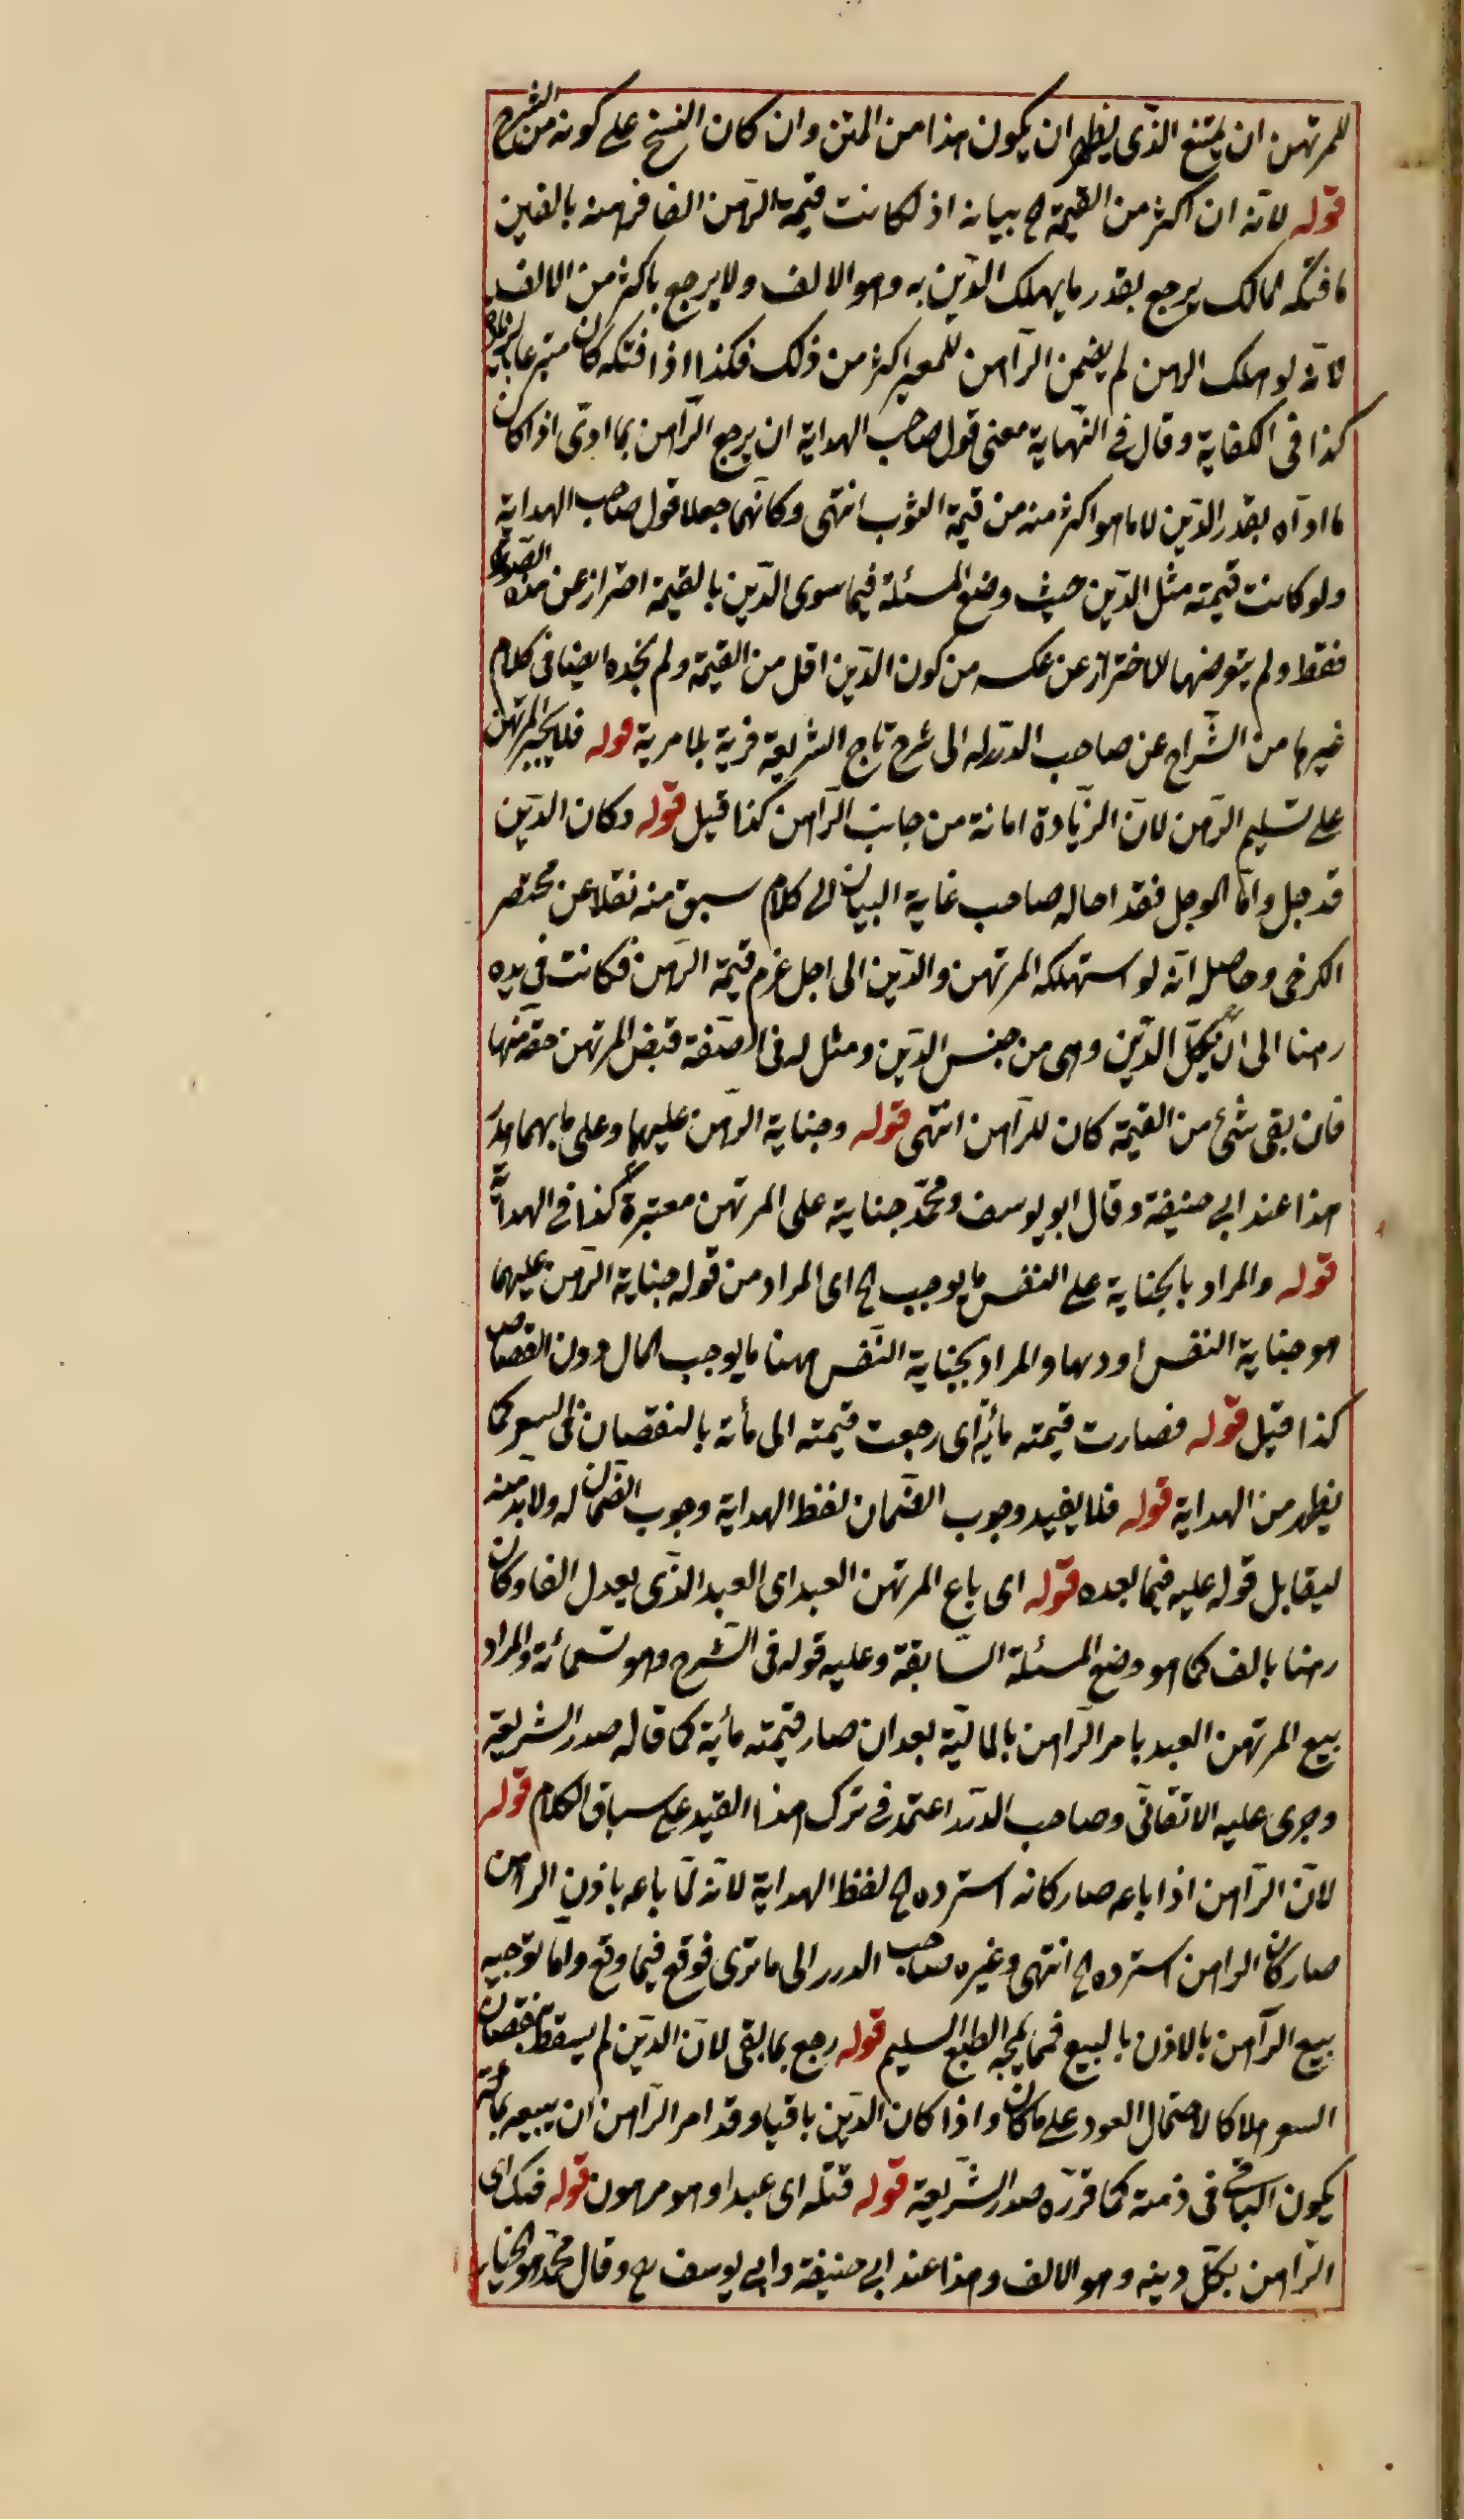 للمرتهن ان يمتنع الذى يظهر ان يكون هذا من المتن وان كان النسخ على كونه من الشرح
قوله لانه ان اكثر من القيمة الخ بيانه اذا كانت قيمة الرهن الفا فرهنه بالفين
فافتكه المالك يرجع بقدر ما يهلك الدين به وهو الالف ولا يرجع باكثر من الالف
لانه لو هلك الرهن لم يضمن الراهن للمعير اكثر من ذلك فكذا اذا افتكه كان متبرعا بالزيادة
كذا فى الكفاية وقال فى النهاية معنى قول صاحب الهداية ان يرجع الراهن بما ادى اذا كان
ما اداه بقدر الدين لا ما هو اكثر منه من قيمة الثوب انتهى وكانهما جعلا قول صاحب الهداية
ولو كانت قيمته مثل الدين حيث وضع المسئلة فيما سوى الدين بالقيمة احتراز عن هذه الصورة
فقط ولم يتعرضها للاحتراز عن عكسه من كون الدين اقل من القيمة ولم نجده ايضا فى كلام
غيرها من الشراح عن صاحب الدرر له الى شرح تاج الشريعة فرية بلا مرية قوله فلا يجبر المرتهن
على تسليم الرهن لان الزيادة امانة من جانب الراهن كذا قيل قوله وكان الدين
قد حل واما الموجل فقد احاله صاحب غاية البيان الى كلام سبق منه نقلا عن مختصر
الكرخى وحاصله انه لو استهلكه المرتهن والدين الى اجل غرم قيمة الرهن فكانت فى يده
رهنا الى ان يحل الدين وهى من جنس الدين ومثل له فى الصفة قبض المرتهن حقه منها
فان بقى شئ من القيمة كان للراهن انتهى قوله وجناية الرهن عليهما وعلى ما بهما هدر
هذا عند ابى حنيفة وقال ابو يوسف ومحمد جنايته على المرتهن معتبرة كذا فى الهداية
قوله والمراد بالجناية على النفس ما يوجب الخ اى المراد من قوله جناية الرهن عليهما
هو جناية النفس اودها والمراد بجناية النفس ههنا ما يوجب المال دون القصاص
كذا قيل قوله فصارت قيمته مائة اى رجعت قيمته الى مأة بالنقصان فى السعر كما
يظهر من الهداية قوله فلا يفيد وجوب الضمان لفظ الهداية وجوب الضمان له ولا بد منه
ليقابل قوله عليه فيما بعده قوله اى باع المرتهن العبد اى العبد الذى يعدل الفا وكان
رهنا بالف كما هو وضع المسئلة السابقة وعليه قوله فى الشرح وهو تسعمائة والمراد
بيع المرتهن العبد بامر الراهن بالمائية بعد ان صار قيمته مأية كما قاله صدر الشريعة
وجرى عليه الاتقانى وصاحب الدرر اعتمد فى ترك هذا القيد على سباق الكلام قوله
لان الراهن اذا باعه صار كانه استرده الخ لفظ الهداية لانه لما باعه باذن الراهن
صار كان الراهن استرده الخ انتهى وغيره صاحب الدرر الى ما ترى فوقع فيما وقع واما توجيه
بيع الراهن بالاذن بالبيع فمما يمجه الطبع السليم قوله رجع بما بقى لان الدين لم يسقط بنقصان
السعر هلاكا لاحتمال العود على ما كان واذا كان الدين باقيا وقد امر الراهن ان يبيعه بمائة
يكون الباقى فى ذمته كما قرره صدر الشريعة قوله قتله اى عبدا وهو مرهون قوله فتك اى
الراهن بكل دينه وهو الالف وهذا عند ابى حنيفة وابى يوسف رح وقال محمد هو بالخيار